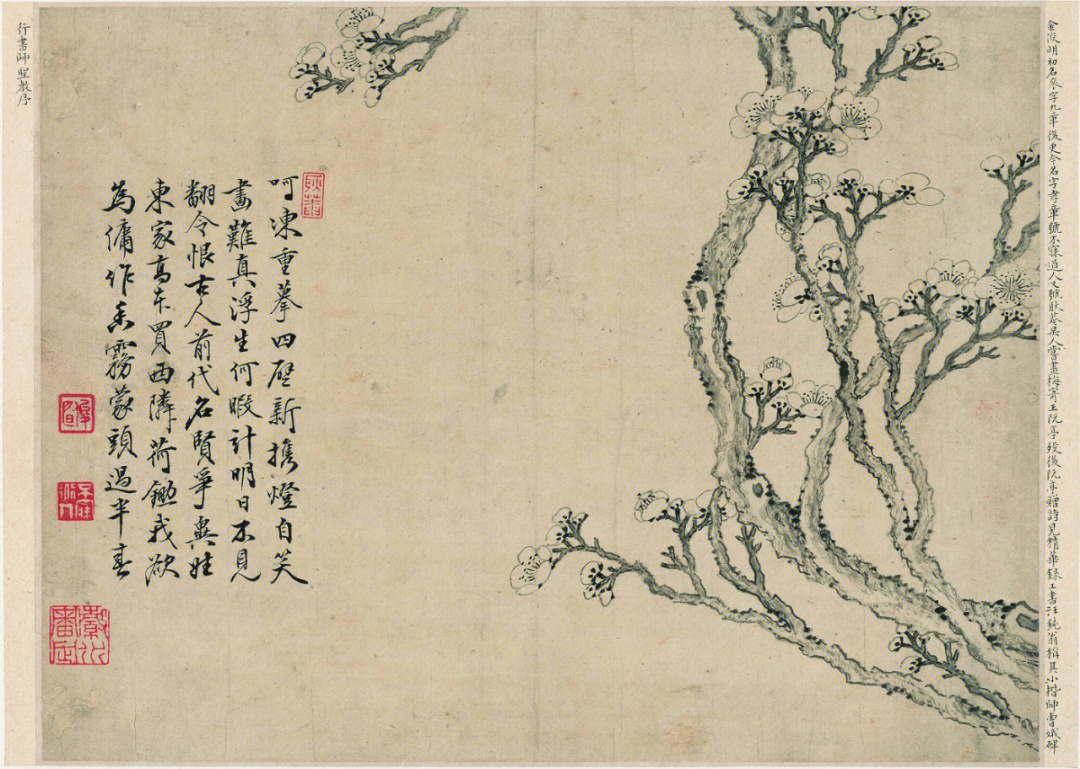 金俊明初名袞字九章後更今名字孝章號不寐道人又號耿菴吳人嘗畫梅寄王阮亭歿後阮亭贈詩見精華錄工書汪鈍翁稱其小楷師曹娥碑
耿菴
呵凍重摹四壁新擕燈自笑
畫難真浮生何暇計明日不見
翻令恨古人前代名賢爭與
東家高買西隣荷鋤我欲
為傭作香霧蒙頭過半春
俊明
不寐道人
行書師聖教序